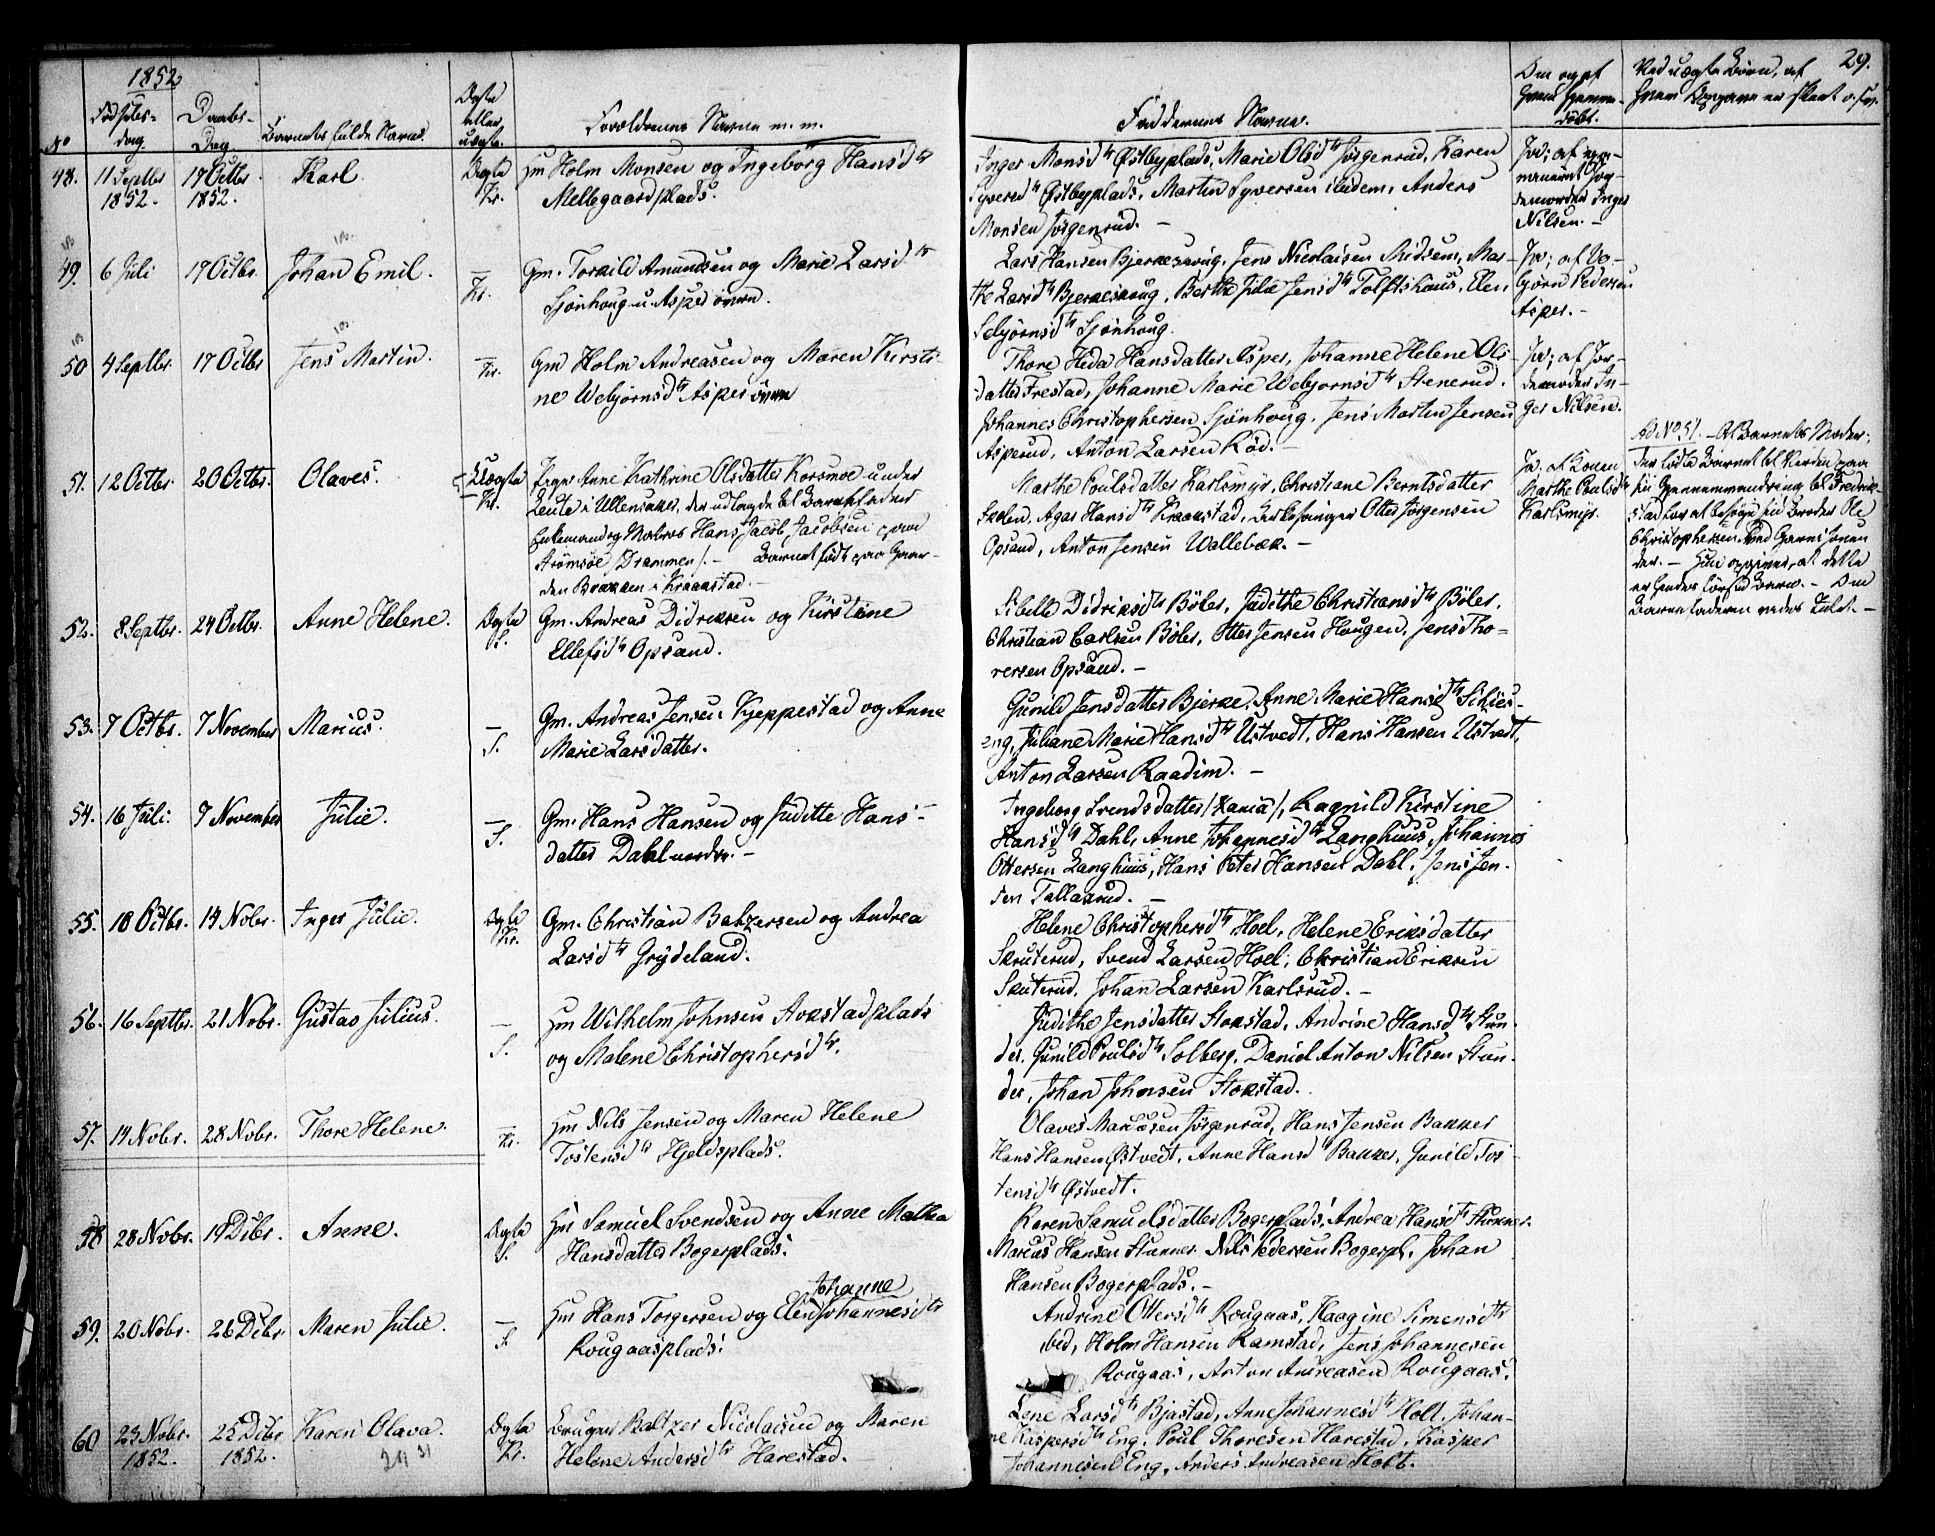 1852
29.
No
Fødsels-
dag.
Daabs-
Dag
Barnets fulde Navn.
Ægte
eller
uægte.
Forældrenes Navne m. m.
Faddernes Navne.
Om og af
hvem hjemme-
døbt.
Ved uægte Børn, af
48. 11 Septbr 17 Octbr. Karl. Ægte Hm Holm Monsen og Ingeborg Hansdtr
1852. 1852. Kr. Mellegaardplads.
Inger Monsdtr Østbyplads, Marie Olsdtr Jørgenrud, Karen
Syversdtr Østbyplads, Martin Syversen ibidem, Anders
Monsen Jørgenrud. —
Ja; af
Inger
Nilsen. —
49. 6 Juli 17 Octbr. Johan Emil. — Gm. Torkild Amundsen og Marie Larsdtr
Kr. Sjönhoug u. Asper övrn.
Lars Hansen Bjerkeskoug, Jens Nicolaisen Midsem, Mar-
the Larsdtr Bjerkeskoug, Berthe Julie Jensdtr Tolftshuus, Elen
Sebjørnsdtr Sjönhoug.
Ja; af Ve-
bjørn Pedersen
Asper. —
50 4 Septbr. 17 Octbr Jens Martin. — Gm Holm Andreasen og Maren Kirsti-
Kr. ne Webjørnsdtr Asper övrn
Thore Heda Hansdatter Asper, Johanne Helene Ols-
datter Frestad, Johanne Marie Webjornsdtr Stenerud.
Johannes Christophersen Sjönhoug, Jens Martin Jensen
Asperud, Anton Larsen Röd. —
Ja; af Jor-
demoder In-
ger Nilsen.
51. 12 Octbr. 20 Octbr. Olaves. Uægte Pigen Anne Kathrine Olsdatter Korsmoe under
Kr. Leute i Ullensaker, der udlagde til Barnefader
Enkemand og Matros Hans Jacob Jacobsen paa
Strømsøe /Drammen/. — Barnet født paa Gaar-
den Brakken i Kraakstad. —
Marthe Poulsdatter Karlsmyr, Christiane Berntsdatter
Skolen, Agar Hansdtr Kraakstad, Kirkesanger Otter Jørgensen
Opsand, Anton Jensen Wallebæk. —
Ja af Konen
Marthe Poulsdtr
Karlsmyr.
Ad No 51. — Barnets Moder,
der fødte Barnet paa
sin Gjennemvandring til Fredrik-
stad for at besøge sin Broder Ole
Christophersen
der. — Hun opgiver, at dette
er hendes første Barn. — Om
Barnefaderen vides Intet. —
52. 8 Septbr. 24 Octbr. Anne Helene. Ægte Gm. Andreas Didriksen og Kirstine
S. Ellefsdtr Opsand.
Sibelle Didriksdtr Böler, Judithe Christiansdtr Böler,
Christian Carlsen Böler, Otter Jensen Hougen, Jens Tho-
resen Opsand. —
53. 7 Octbr. 7 November Marius. — Gm. Andreas Jensen Kjeppestad og Anne
S. Marie Larsdatter.
Gunild Jensdatter Bjerke, Anne Marie Hansdtr Skies-
eng, Juliane Marie Hansdtr Ustvedt, Hans Hansen Ustvedt,
Anton Larsen Raadim. —
54. 16 Juli. 7 November Julie. — Gm. Hans Hansen og Juditte Hans-
S. datter Dahl nordre. —
Ingeborg Svendsdatter /Kania/, Ragnild Kirstine
Hansdtr Dahl, Anne Johannesdtr Langhuus, Johannes
Ottersen Langhuus, Hans Peter Hansen Dahl, Jens Jen-
sen Tallaksrud. —
55. 10 Octbr. 14 Nobr. Inger Julie. Ægte Gm. Christian Baltzersen og Andrea
Kr. Larsdtr Grydeland.
Helene Christophersdtr Hoel, Helene Eriksdatter
Skuterud, Svend Larsen Hoel, Christian Eriksen
Skuterud, Johan Larsen Karlsrud. —
56. 16 Septbr. 21 Nobr. Gustav Julius. — Hm Wilhelm Johnsen Stokstadplads
S. og Malene Christophersdtr.
Judithe Jensdatter Stokstad, Andrine Hansdtr Stun-
der, Gunild Poulsdtr Solberg, Daniel Anton Nilsen Stun-
der, Johan Johnsen Stokstad.
57. 14 Nobr. 28 Nobr. Thore Helene. — Hm Nils Jensen og Maren Helene
Kr. Tostensdtr Hjeldsplads.
Olaves Monsen Jørgenrud, Hans Jensen Bakker
Hans Hansen Østvedt, Anne Hansdtr Bakker, Gunild Tos-
tensdtr Østvedt.
58 28 Nobr. 19 Dcbr. Anne. Ægte Hm Samuel Svendsen og Anne Mathea
S. Hansdatter Bogerplads.
Karen Samuelsdatter Bogerplads, Andrea Hansdtr Stunner
Marcus Hansen Stunner, Nils Pedersen Bogerpl, Johan
Hansen Bogerplads. —
59. 20 Nobr. 26 Dcbr Maren Julie. — Hm Hans Torgersen og Elen Johanne Johannesdtr
S. Rougaasplads.
Andrine Ottersdtr Rougaas, Haagine Simensdtr
ibid, Holm Hansen Ramstad, Jens Johannesen
Rougaas, Anton Andreasen Rougaas.
60 23 Nobr. 25 Dcbr Karen Olava. Ægte Brugm. Baltzer Nicolaisen og Maren
1852. 1852. Kr. Helene Andersdtr Harestad.
Lene Larsdtr Bjastad, Anne Johannesdtr Holt, Johan-
ne Kaspersdtr Eng, Poul Thoresen Harestad, Kasper
Johannesen Eng, Anders Andreasen Holt.